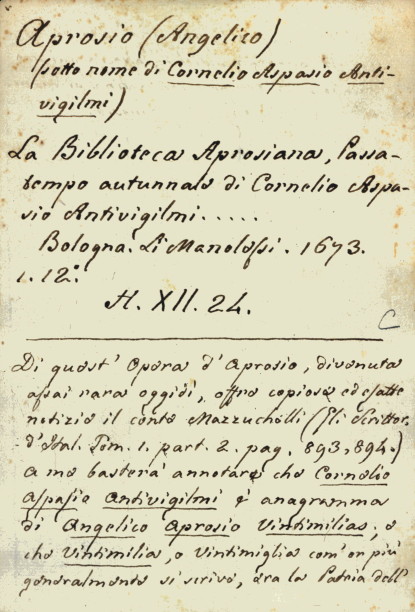 Aprosio (Angelico)
(sotto nome di Cornelio Aspasio Anti-
vigilmi)
La Biblioteca Aprosiana, Passa-
tempo autunnale di Cornelio Aspa-
sio Antivigilmi.....
Bologna. Li Manolessi. 1673.
i. 12.°
H. XII. 24.
C
Di quest' Opera d'Aprosio, divenuta
assai rara oggidì, offre copiose ed esatte
notizie il conte Mazzuchelli (Gli Scrittor.
d'Ital. Tom. 1. part. 2. pag. 893, 894.)
A me basterà annotare che Cornelio
Aspasio Antivigilmi è anagramma
di Angelico Aprosio Vintimilias; e
che Vintimilia, o Vintimiglia com' or più
generalmente si scrive, era la Patria dell'